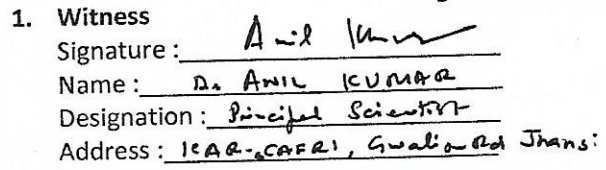 1. Witness
Signature : Anil Kumar
Name : Dr ANIL KUMAR
Designation : Principal Scientist
Address : ICAR-CAFRI, Gwalior Rd Jhansi